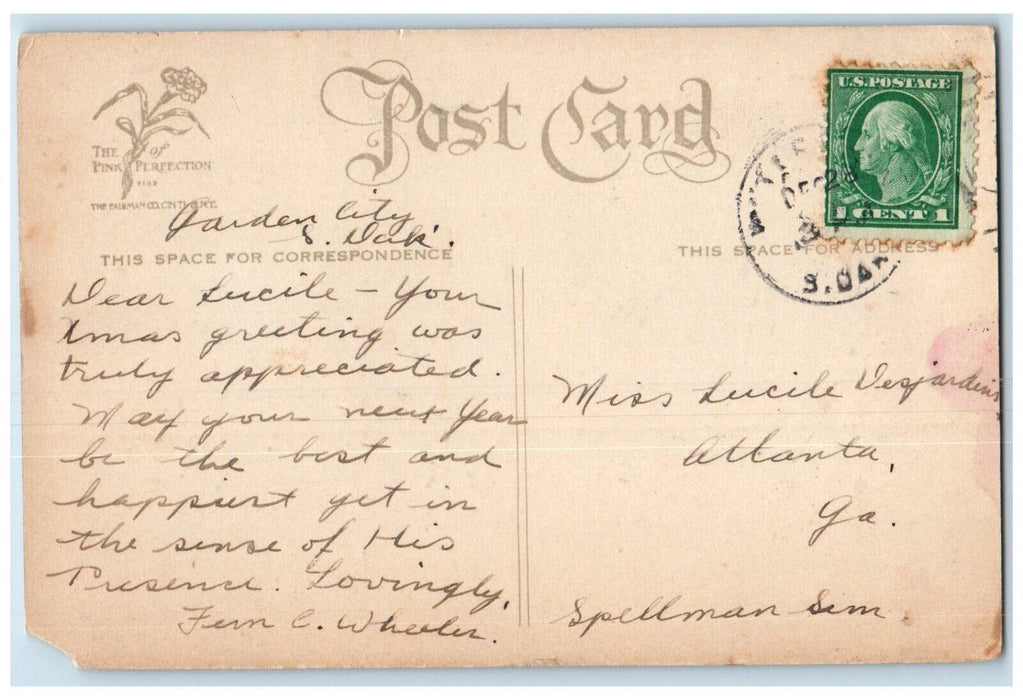 Post Card
THE of
PINK PERFECTION
THE FAIRMAN CO. CIN'TI & N.Y.
U.S. POSTAGE
1 CENT 1
DEC 28
S. DAK
Garden City
S. Dak.
THIS SPACE FOR CORRESPONDENCE
THIS SPACE FOR ADDRESS
Dear Lucile - Your
Xmas greeting was
truly appreciated.
May your next Year
be the best and
happiest yet in
the sense of His
Presence. Lovingly,
Fern C. Wheeler.
Miss Lucile Desjardins,
Atlanta,
Ga.
Spellman Sem.